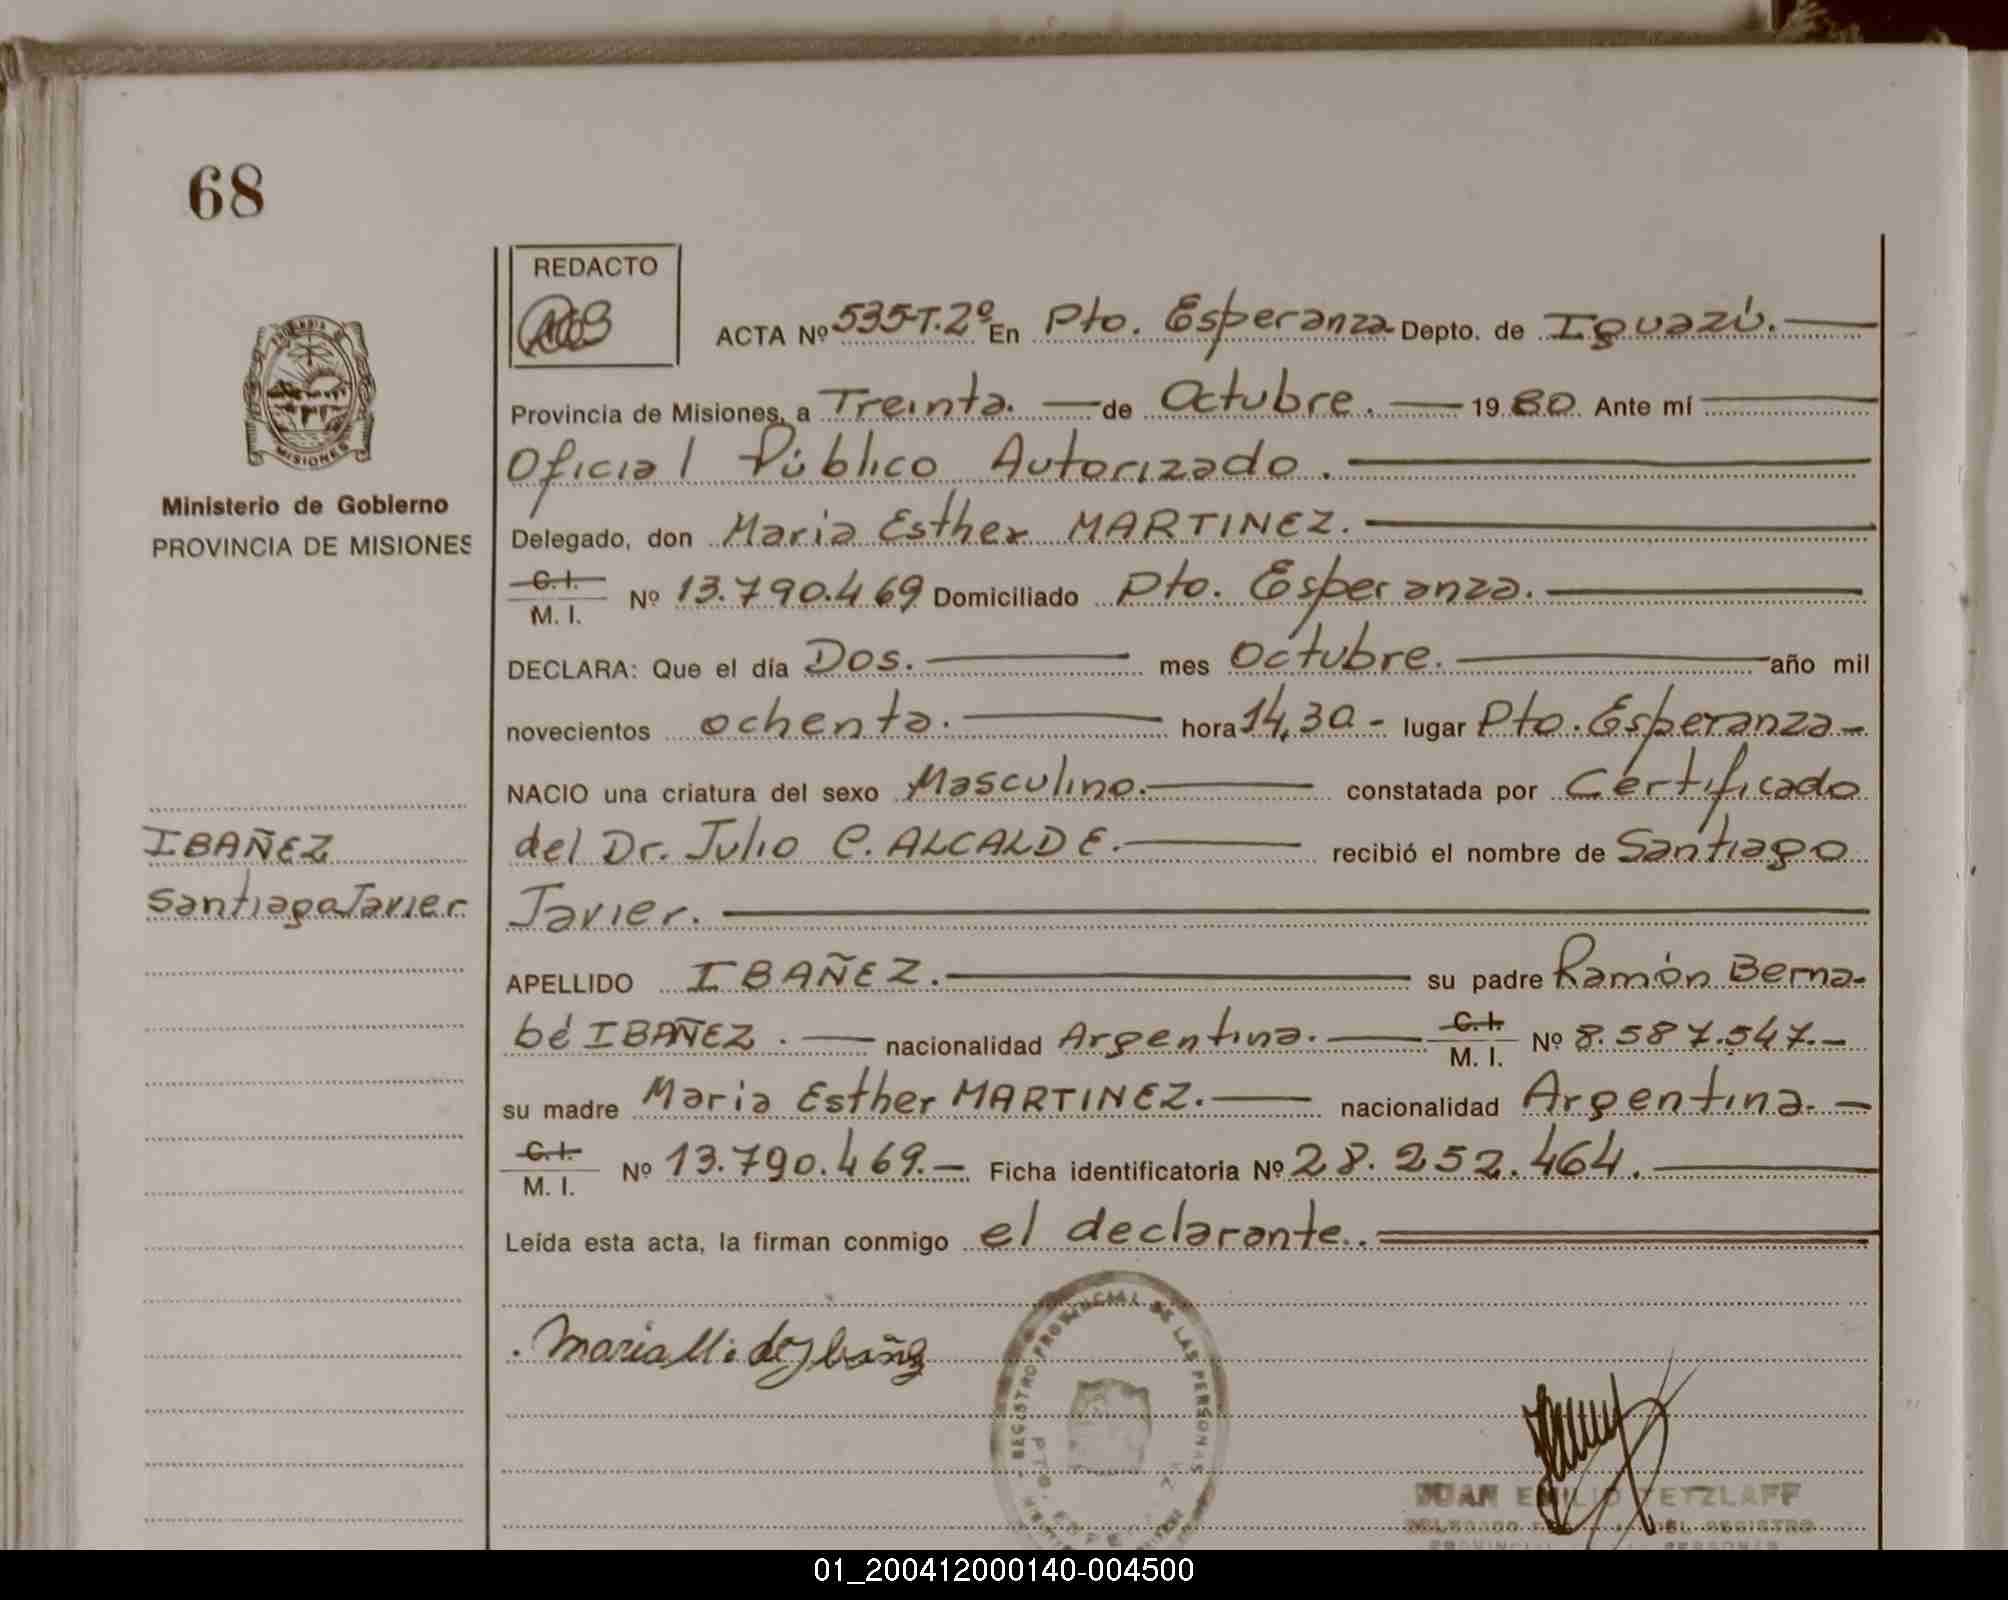 68
REDACTO
ACTA Nº 535-T.2º En Pto. Esperanza Depto. de Iguazú.
Provincia de Misiones, a Treinta. de Octubre. 1980. Ante mí
Oficial Público Autorizado.
MISIONES
Ministerio de Gobierno
PROVINCIA DE MISIONES
Delegado, don Maria Esther MARTINEZ.
C. I.
M. I. Nº 13.790.469 Domiciliado Pto. Esperanza.
DECLARA: Que el día Dos. mes Octubre. año mil
novecientos ochenta. hora 14,30- lugar Pto. Esperanza-
NACIO una criatura del sexo Masculino. constatada por Certificado
IBAÑEZ
del Dr. Julio C. ALCALDE. recibió el nombre de Santiago
Santiago Javier
Javier.
APELLIDO IBAÑEZ. su padre Ramón Berna-
bé IBAÑEZ. nacionalidad Argentina. C. I.
M. I. Nº 8.587.547.-
su madre Maria Esther MARTINEZ. nacionalidad Argentina.-
C. I.
M. I. Nº 13.790.469.- Ficha identificatoria Nº 28.252.464.
Leída esta acta, la firman conmigo el declarante.
REGISTRO PROVINCIAL DE LAS PERSONAS
Maria M. de Ybañez
JUAN EMILIO TETZLAFF
DELEGADO DEL REGISTRO
01_200412000140-004500